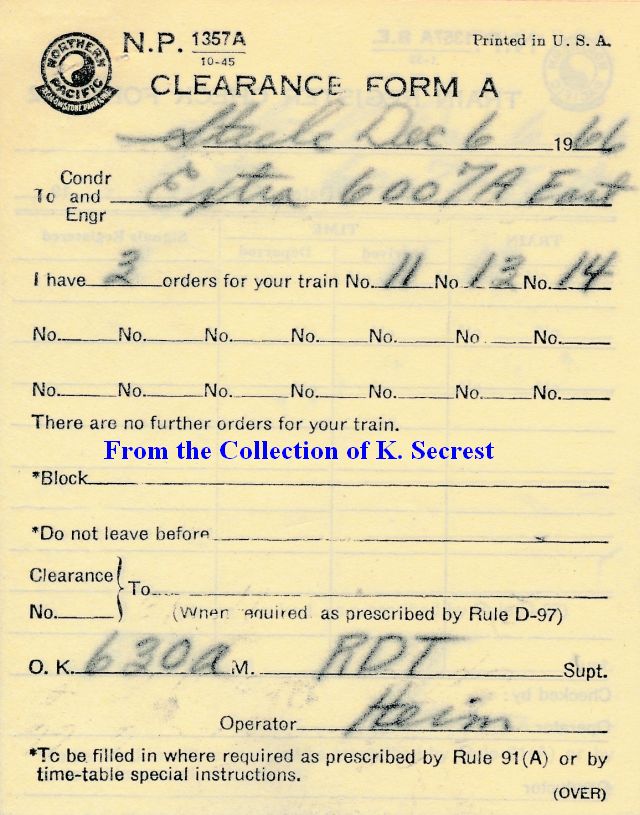 NORTHERN PACIFIC YELLOWSTONE PARK LINE
N.P. 1357A
10-45
Printed in U. S. A.
CLEARANCE FORM A
Steele Dec 6 1966
Condr
To and Extra 6007A East
Engr
I have 3 orders for your train No. 11 No 13 No. 14
No. No. No. No. No. No No.
No. No. No. No. No. No. No.
There are no further orders for your train.
From the Collection of K. Secrest
*Block
*Do not leave before
Clearance To
No. (When required as prescribed by Rule D-97)
O. K. 630a M. RDT Supt.
Operator Heim
*To be filled in where required as prescribed by Rule 91(A) or by
time-table special instructions.
(OVER)